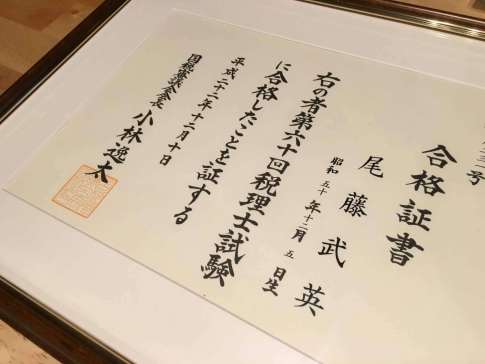 三一号
合格証書
尾藤武英
昭和五十年十二月五日生
右の者第六十回税理士試験
に合格したことを証する
平成二十二年十二月十日
国税審議会会長 小林逸太